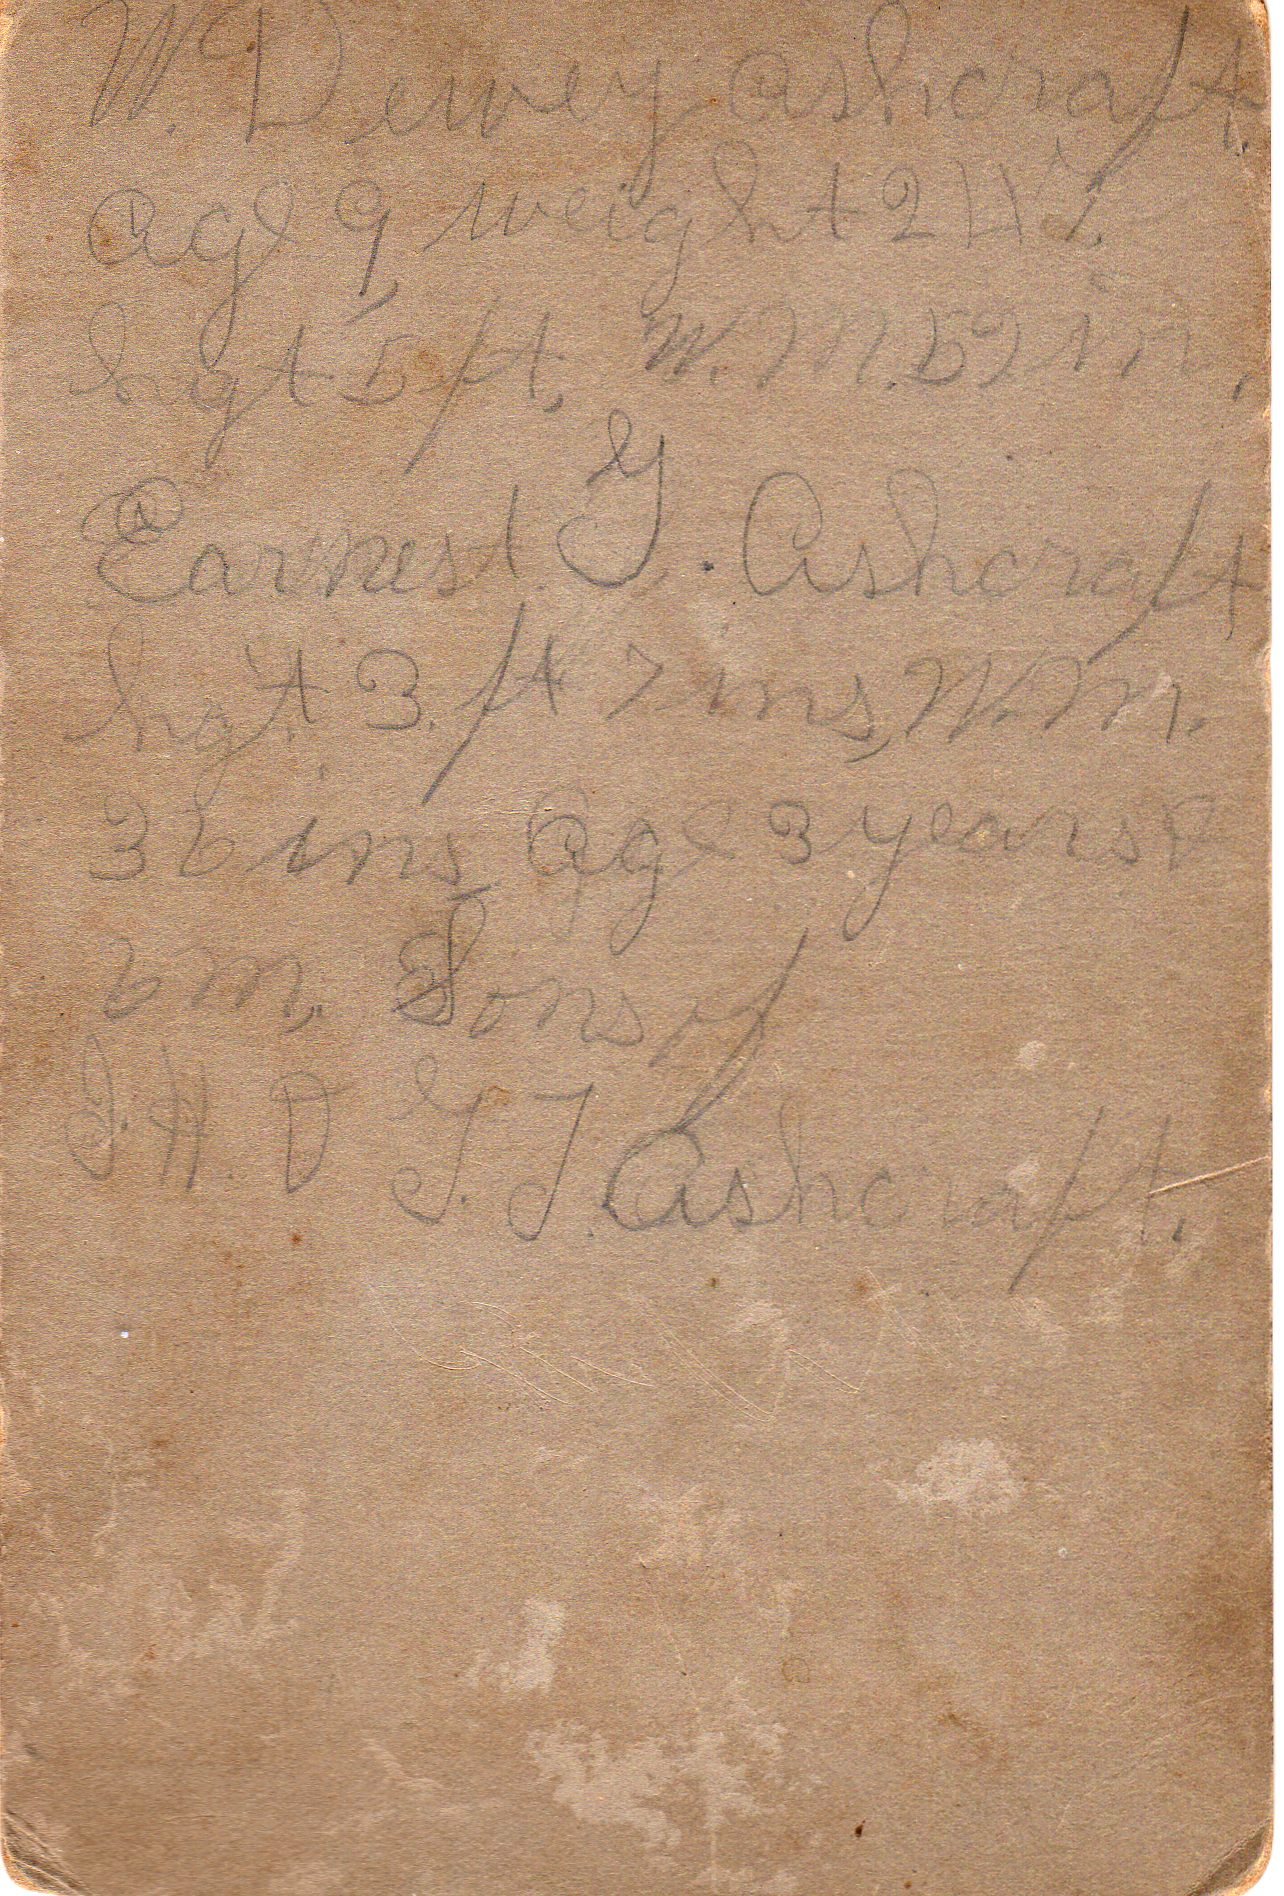 W. Dewey Ashcraft.
age 9, weight
hgt 5 ft, W. M. 52 in,
Earnest G. Ashcraft
hgt. 3. ft 7 ins, W. M.
36 ins, Age 3 years &
6 m, Sons of
J. H. & G. T. Ashcraft.